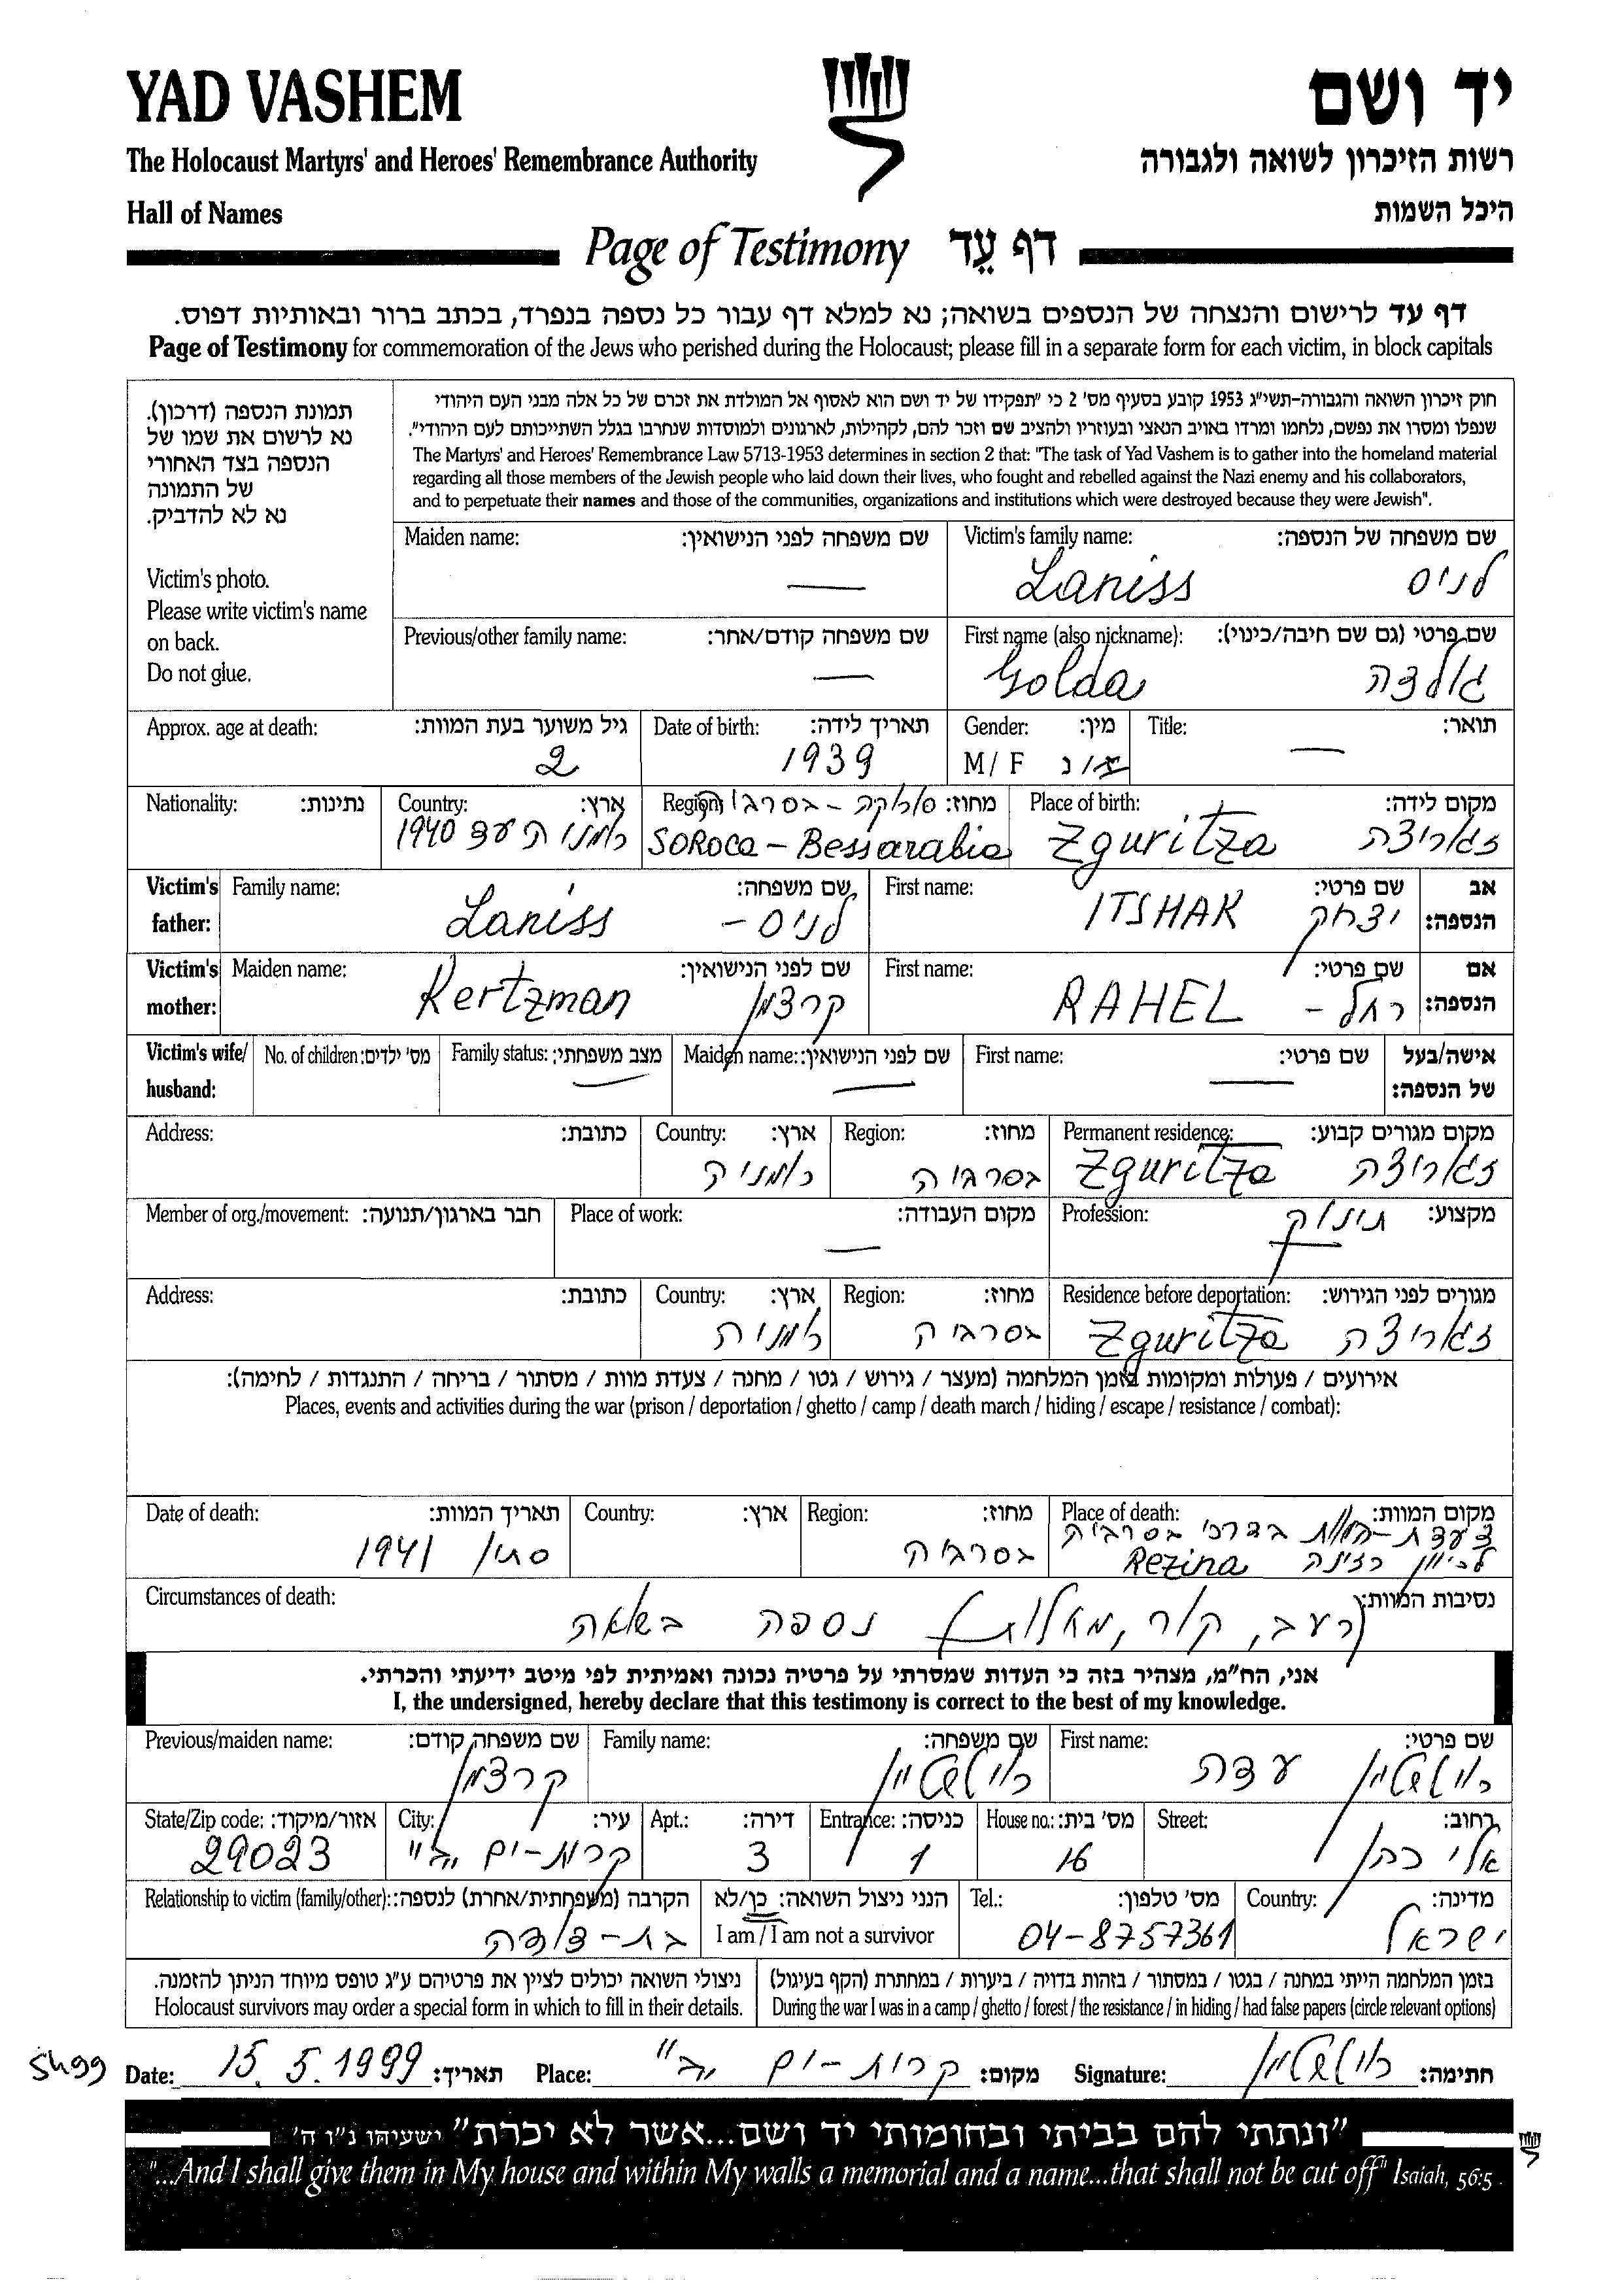 YAD VASHEM
יד ושם
The Holocaust Martyrs' and Heroes' Remembrance Authority
רשות הזיכרון לשואה ולגבורה
Hall of Names
היכל השמות
Page of Testimony דף עֵד
דף עד לרישום והנצחה של הנספים בשואה; נא למלא דף עבור כל נספה בנפרד, בכתב ברור ובאותיות דפוס.
Page of Testimony for commemoration of the Jews who perished during the Holocaust; please fill in a separate form for each victim, in block capitals
תמונת הנספה (דרכון).
נא לרשום את שמו של
הנספה בצד האחורי
של התמונה
נא לא להדביק.
Victim's photo.
Please write victim's name
on back.
Do not glue.
חוק זיכרון השואה והגבורה-תשי״ג 1953 קובע בסעיף מס׳ 2 כי ״תפקידו של יד ושם הוא לאסוף אל המולדת את זכרם של כל אלה מבני העם היהודי
שנפלו ומסרו את נפשם, נלחמו ומרדו באויב הנאצי ובעוזריו ולהציב שם וזכר להם, לקהילות, לארגונים ולמוסדות שנחרבו בגלל השתייכותם לעם היהודי״.
The Martyrs' and Heroes' Remembrance Law 5713-1953 determines in section 2 that: "The task of Yad Vashem is to gather into the homeland material
regarding all those members of the Jewish people who laid down their lives, who fought and rebelled against the Nazi enemy and his collaborators,
and to perpetuate their names and those of the communities, organizations and institutions which were destroyed because they were Jewish".
Maiden name: שם משפחה לפני הנישואין: Victim's family name: שם משפחה של הנספה:
— Laniss לניס
Previous/other family name: שם משפחה קודם/אחר: First name (also nickname): שם פרטי (גם שם חיבה/כינוי):
— Golda גולדה
Approx. age at death: גיל משוער בעת המוות: Date of birth: תאריך לידה: Gender: מין: Title: תואר:
2 1939 M / F ז / נ —
Nationality: נתינות: Country: ארץ: Region: מחוז: סורוקה - בסרביה Place of birth: מקום לידה:
רומניה עד 1940 SOROCA - Bessarabia Zguritza זגוריצה
Victim's father: Family name: שם משפחה: First name: שם פרטי: אב הנספה:
Laniss לניס - ITSHAK יצחק
Victim's mother: Maiden name: שם לפני הנישואין: First name: שם פרטי: אם הנספה:
Kertzman קרצמן RAHEL רחל -
Victim's wife/ husband: No. of children: מס׳ ילדים: Family status: מצב משפחתי: Maiden name: שם לפני הנישואין: First name: שם פרטי: אישה/בעל של הנספה:
— — —
Address: כתובת: Country: ארץ: Region: מחוז: Permanent residence: מקום מגורים קבוע:
רומניה בסרביה Zguritza זגוריצה
Member of org./movement: חבר בארגון/תנועה: Place of work: מקום העבודה: Profession: מקצוע:
— תינוק
Address: כתובת: Country: ארץ: Region: מחוז: Residence before deportation: מגורים לפני הגירוש:
רומניה בסרביה Zguritza זגוריצה
אירועים / פעולות ומקומות בזמן המלחמה (מעצר / גירוש / גטו / מחנה / צעדת מוות / מסתור / בריחה / התנגדות / לחימה):
Places, events and activities during the war (prison / deportation / ghetto / camp / death march / hiding / escape / resistance / combat):
Date of death: תאריך המוות: Country: ארץ: Region: מחוז: Place of death: מקום המוות:
סתיו 1941 בסרביה צעדת-המוות בדרכי בסרביה
לכיוון רזינה Rezina
Circumstances of death: נסיבות המוות:
(רעב, קור, מחלות) נספה בשואה
אני, הח״מ, מצהיר בזה כי העדות שמסרתי על פרטיה נכונה ואמיתית לפי מיטב ידיעתי והכרתי.
I, the undersigned, hereby declare that this testimony is correct to the best of my knowledge.
Previous/maiden name: שם משפחה קודם: Family name: שם משפחה: First name: שם פרטי:
קרצמן עדה
State/Zip code: אזור/מיקוד: City: עיר: Apt.: דירה: Entrance: כניסה: House no.: מס׳ בית: Street: רחוב:
29023 קרית-ים 3 1 16 אלי כהן
Relationship to victim (family/other): הקרבה (משפחתית/אחרת) לנספה: הנני ניצול השואה: כן/לא Tel.: מס׳ טלפון: Country: מדינה:
בת-דודה I am / I am not a survivor 04-8757361 ישראל
ניצולי השואה יכולים לציין את פרטיהם ע״ג טופס מיוחד הניתן להזמנה.
Holocaust survivors may order a special form in which to fill in their details.
בזמן המלחמה הייתי במחנה / בגטו / במסתור / בזהות בדויה / ביערות / במחתרת (הקף בעיגול)
During the war I was in a camp / ghetto / forest / the resistance / in hiding / had false papers (circle relevant options)
Date: 15.5.1999 תאריך: Place: קרית-ים מקום: Signature: חתימה:
״ונתתי להם בביתי ובחומותי יד ושם...אשר לא יכרת״ ישעיהו נ״ו ה׳
"...And I shall give them in My house and within My walls a memorial and a name...that shall not be cut off" Isaiah, 56:5